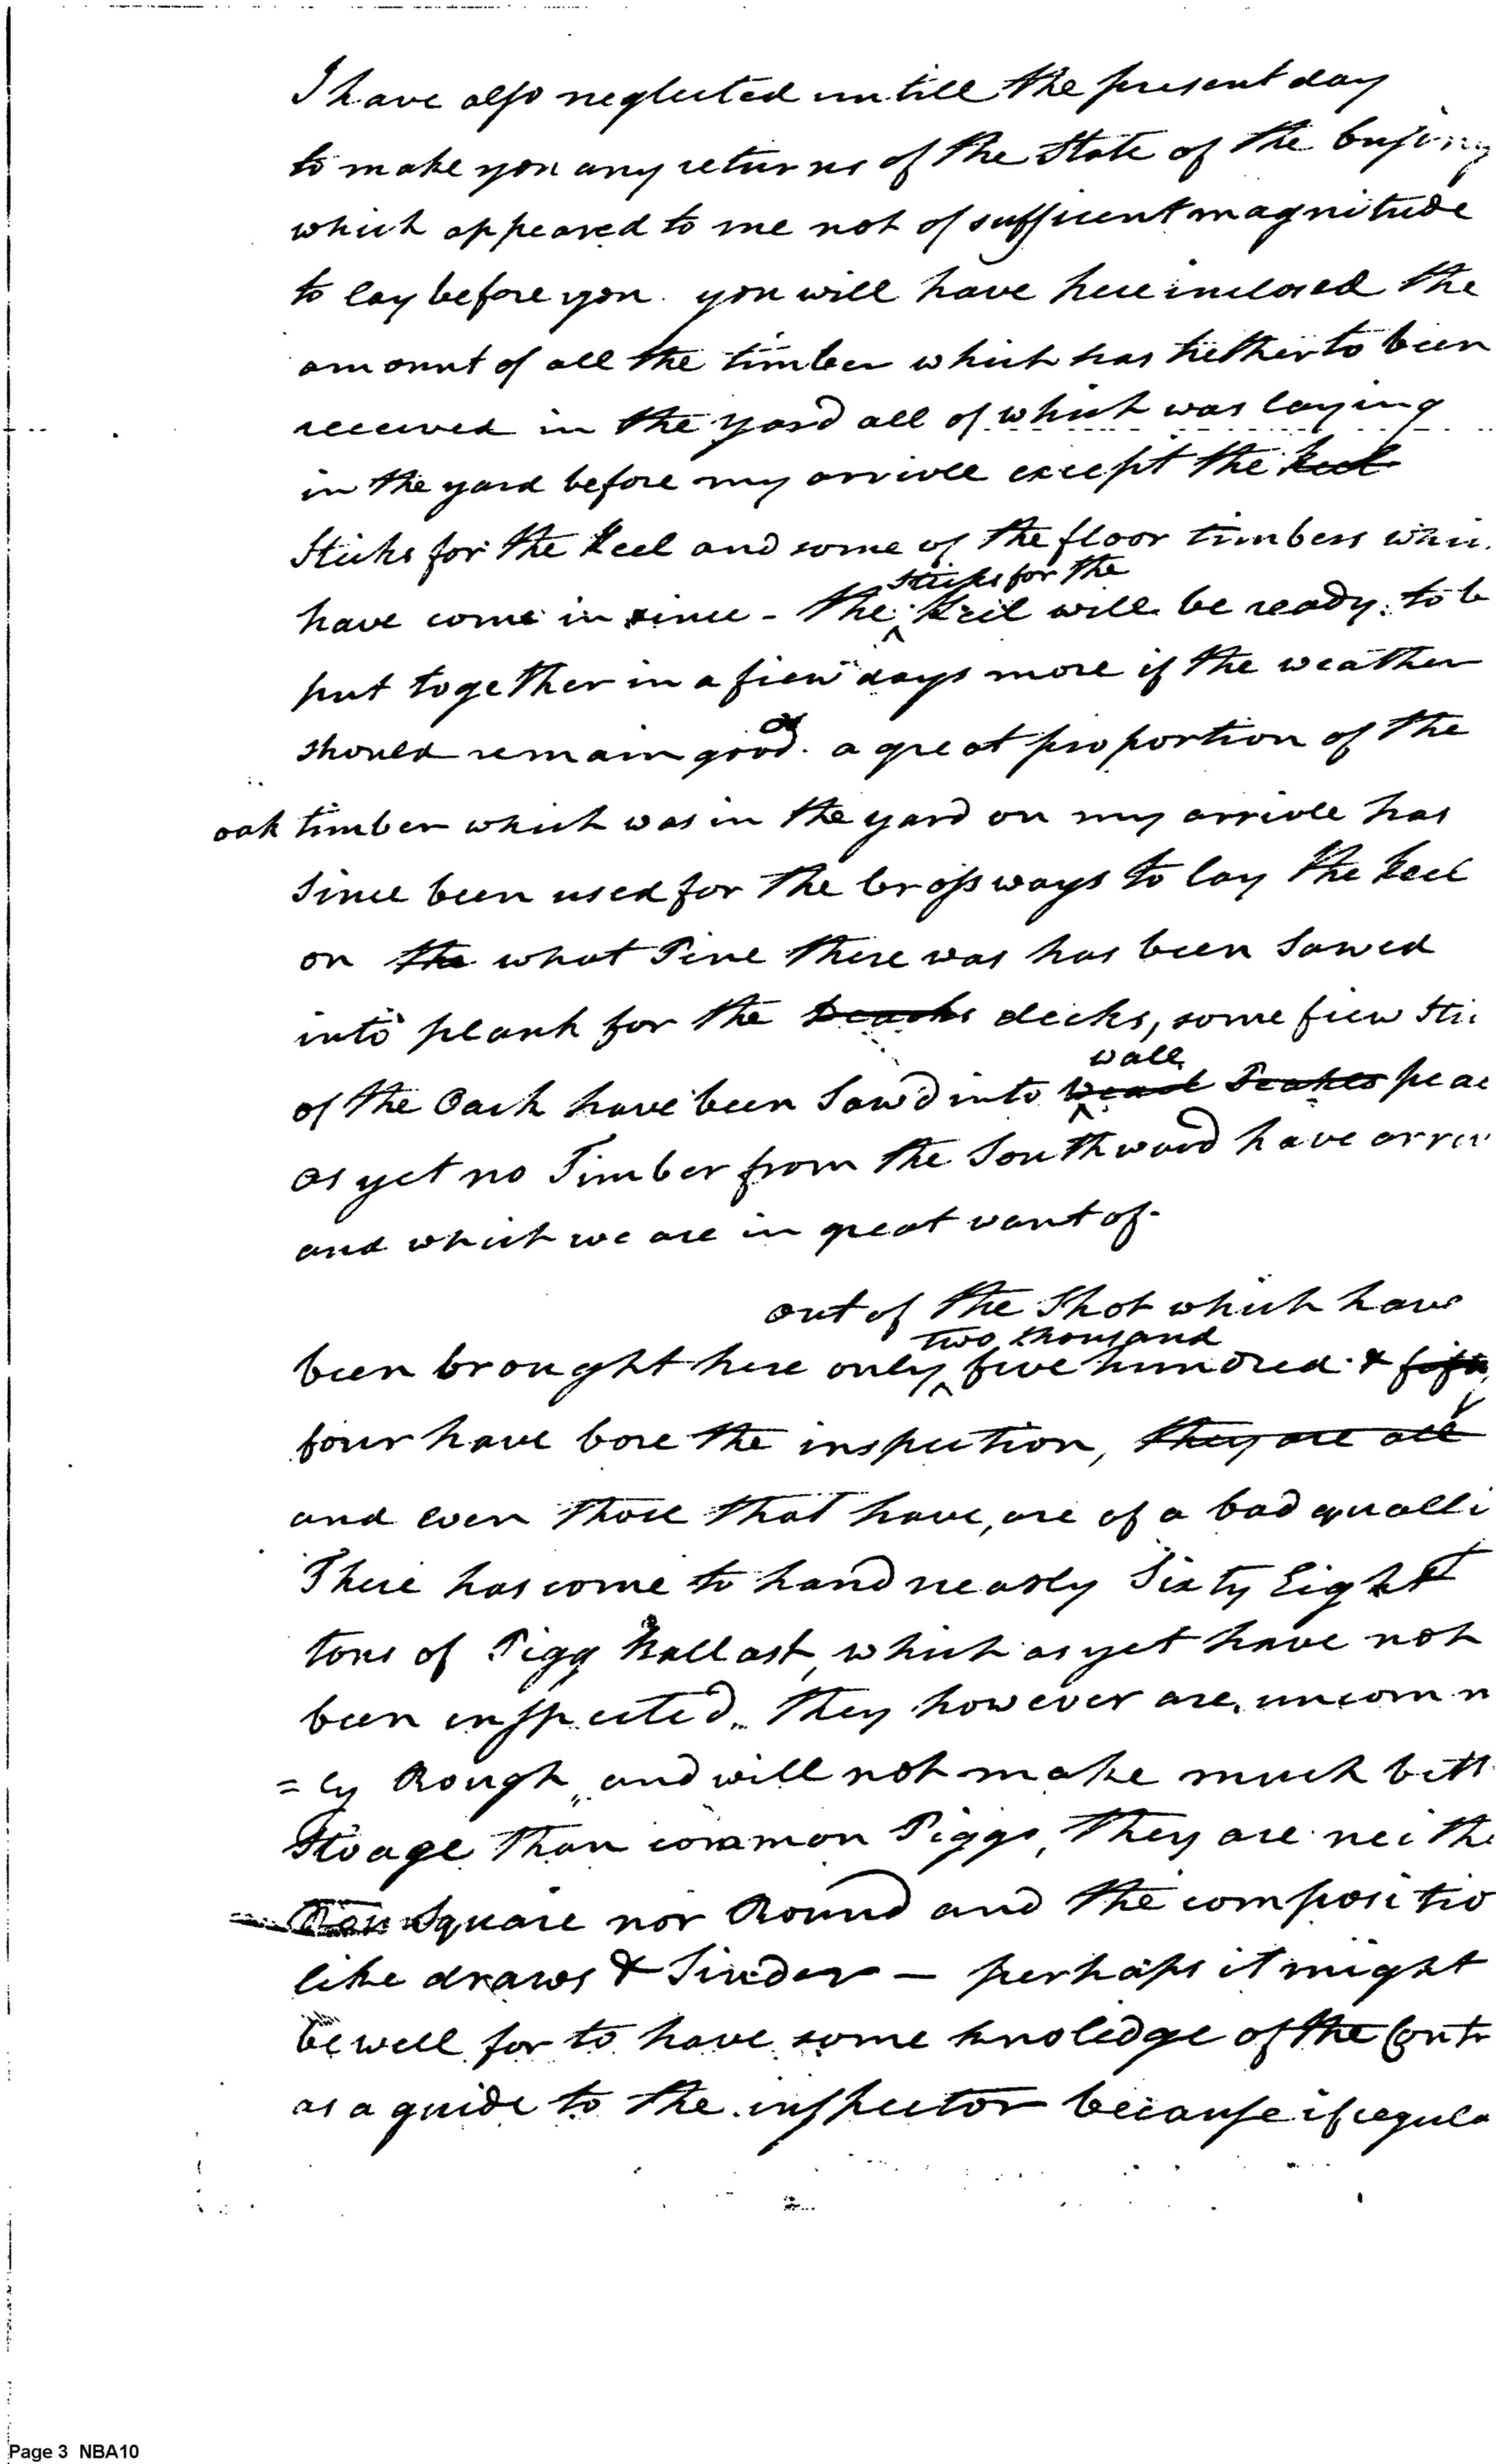 I have also neglected untill the present day
to make you any returns of the State of the
which appeared to me not of sufficent magnitude
to lay before you. you will have here inclosed the
amount of all the timber which has hetherto been
received in the yard all of which was laying
in the yard before my arrivle except the keel
Sticks for the keel and some of the floor timbers whi
have come in since - the sticks for the keel will be ready to b
put together in a fiew days more if the weather
should remain good. a great proportion of the
oak timber which was in the yard on my arrivle has
Since been used for the cross ways to lay the keel
on the what Pine there was has been Sawed
into plank for the decks, some fiew Sti
of the Oack have been Saw'd into wall
as yet no Timber from the Southward have arriv
and which we are in great want of.
out of the Shot which have
been brought here only two thousand five hundred & fifty
four have bore the inspection, they are all
and even those that have, are of a bad qualli
There has come to hand nearly Sixty Eight
tons of Pigg Ballast, which as yet have not
been inspected, They however are uncomn
=ly Rough, and will not make much bett
Stoage than common Piggs, They are neithe
Square nor Round and the compositio
like draws & Sinder — perhaps it might
be well for to have some knoledge of the Contr
as a guide to the inspector because if regula
Page 3 NBA10